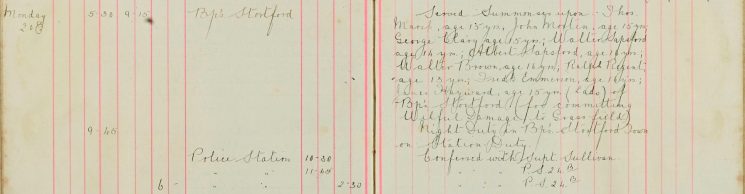 Monday 5-30 9-15 Bp's Stortford Served Summonses upon Thos.
26th age 15 yrs, John Martin, age 15 yrs
George Clary age 15 yrs; Walter Sapsford
age 14 yrs; Albert Sapsford, age 16 yrs;
Walter Brown age 14 yrs, Ralph
age 13 yrs; Emmerson, age 16 yrs;
Hayward, age 15 yrs (lads) of
Bp's Stortford for committing
Wilful Damage to Grass field
9-45 Night Duty in Bp's Stortford Town
on Station Duty
Police Station 10-30 Conferred with Supt. Sullivan
" " 11-45 " " P.S. 24 B
6 - " " 2-30 " " P.S. 24 B